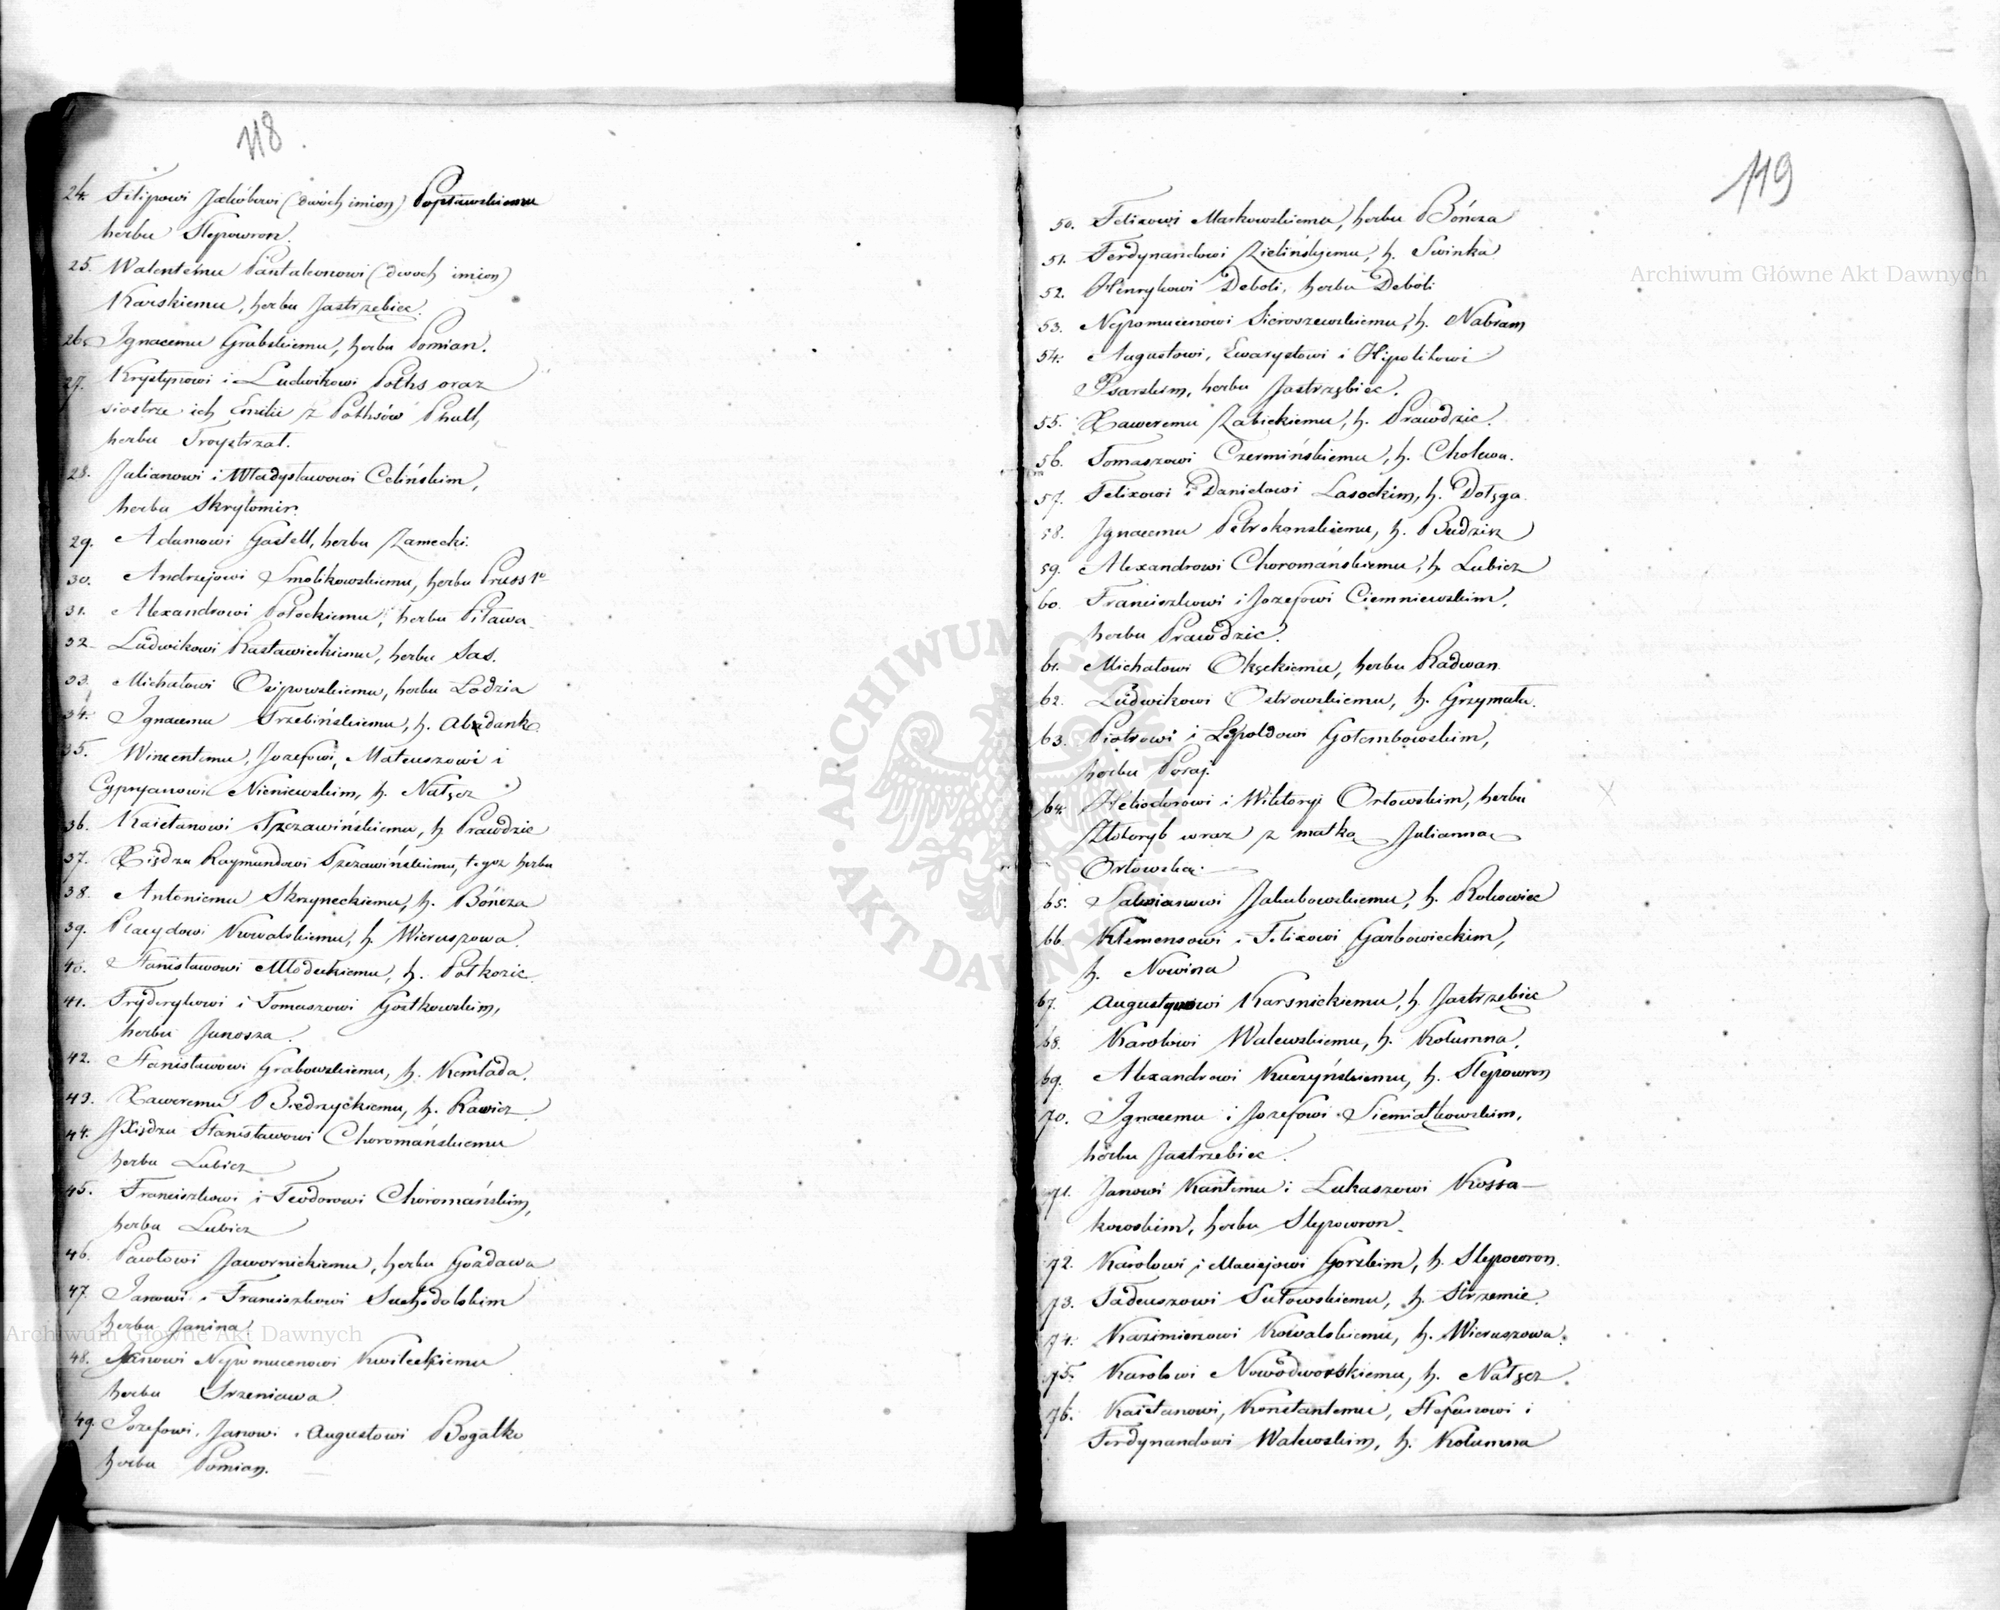 118.
24. Filipowi Jakóbowi (dwóch imion) Popławskiemu
herbu Slepowron.
25. Walentemu Pantaleonowi (dwoch imion)
Karskiemu, herbu Jastrzębiec.
26. Ignacemu Grabskiemu, herbu Pomian.
27. Krystynowi i Ludwikowi Poths oraz
siostrze ich Emilii z Pothsów Phull,
herbu Troystrzał.
28. Julianowi i Władysławowi Celińskim,
herbu Skrytomir.
29. Adamowi Gastell, herbu Zamecki.
30. Andrzejowi Smolikowskiemu, herbu Pruss 1º
31. Alexandrowi Potockiemu, herbu Piława
32. Ludwikowi Rastawieckiemu, herbu Sas.
33. Michałowi Osipowskiemu, herbu Łodzia
34. Ignacemu Trzebińskiemu, h. Abdank
35. Wincentemu, Jozefowi, Mateuszowi i
Cypryanowi Nieniewskim, h. Nałęcz
36. Kaietanowi Szczawińskiemu, h. Prawdzic
37. Xiędzu Raymundowi Szczawińskiemu, tegoz herbu
38. Antoniemu Skrzyneckiemu, h. Bończa
39. Placydowi Kowalskiemu, h. Wieruszowa.
40. Stanisławowi Młodeckiemu, h. Połkozic
41. Fryderykowi i Tomaszowi Gostkowskim,
herbu Junosza.
42. Stanisławowi Grabowskiemu, h. Korniada.
43. Xaweremu Biedrzyckiemu, h. Rawicz
44. JXiędzu Stanisławowi Choromańskiemu
herbu Lubicz
45. Franciszkowi i Teodorowi Choromańskim,
herbu Lubicz
46. Pawłowi Jawornickiemu, herbu Gozdawa
47. Janowi i Franciszkowi Suchodolskim
herbu Janina
48. Janowi Nepomucenowi Kwileckiemu
herbu Srzeniawa
49. Jozefowi, Janowi i Augustowi Bogatko
herbu Pomian.
119
50. Felixowi Markowskiemu, herbu Bończa
51. Ferdynandowi Zielińskiemu, h. Swinka
52. Henrykowi Deboli, herbu Deboli
53. Nepomucenowi Sieroszewskiemu, h. Nabram
54. Augustowi, Ewarystowi i Hipolitowi
Psarskim, herbu Jastrzębiec.
55. Xaweremu Zabickiemu, h. Prawdzic.
56. Tomaszowi Czermińskiemu, h. Cholewa.
57. Felixowi i Danielowi Lasockim, h. Dołęga
58. Ignacemu Petrokonskiemu, h. Budzisz
59. Alexandrowi Choromańskiemu, h. Lubicz
60. Franciszkowi i Jozefowi Ciemniewskim,
herbu Prawdzic.
61. Michałowi Okęckiemu, herbu Radwan
62. Ludwikowi Ostrowskiemu, h. Grzymała.
63. Piotrowi i Leopoldowi Gołembowskim,
herbu Poraj.
64. Heliodorowi i Wiktoryi Orłowskim, herbu
Złotoryb wraz z matką Julianną
Orłowską.
65. Salwianowi Jakubowskiemu, h. Rolowiec
66. Klemensowi i Felixowi Garbowieckim,
h. Nowina
67. Augustynowi Karsnickiemu, h. Jastrzębiec
68. Karolowi Walewskiemu, h. Kolumna.
69. Alexandrowi Kuczyńskiemu, h. Slepowron
70. Ignacemu i Jozefowi Siemiątkowskim,
herbu Jastrzębiec.
71. Janowi Kantemu i Łukaszowi Kossa-
kowskim, herbu Slepowron.
72. Karolowi i Maciejowi Gorskim, h. Slepowron.
73. Tadeuszowi Sułowskiemu, h. Strzemie.
74. Kazimierzowi Kowalskiemu, h. Wieruszowa.
75. Karolowi Nowodworskiemu, h. Nałęcz.
76. Kaietanowi, Konstantemu, Stefanowi i
Ferdynandowi Walewskim, h. Kolumna
Archiwum Główne Akt Dawnych
Archiwum Główne Akt Dawnych
ARCHIWUM GŁÓWNE AKT DAWNYCH